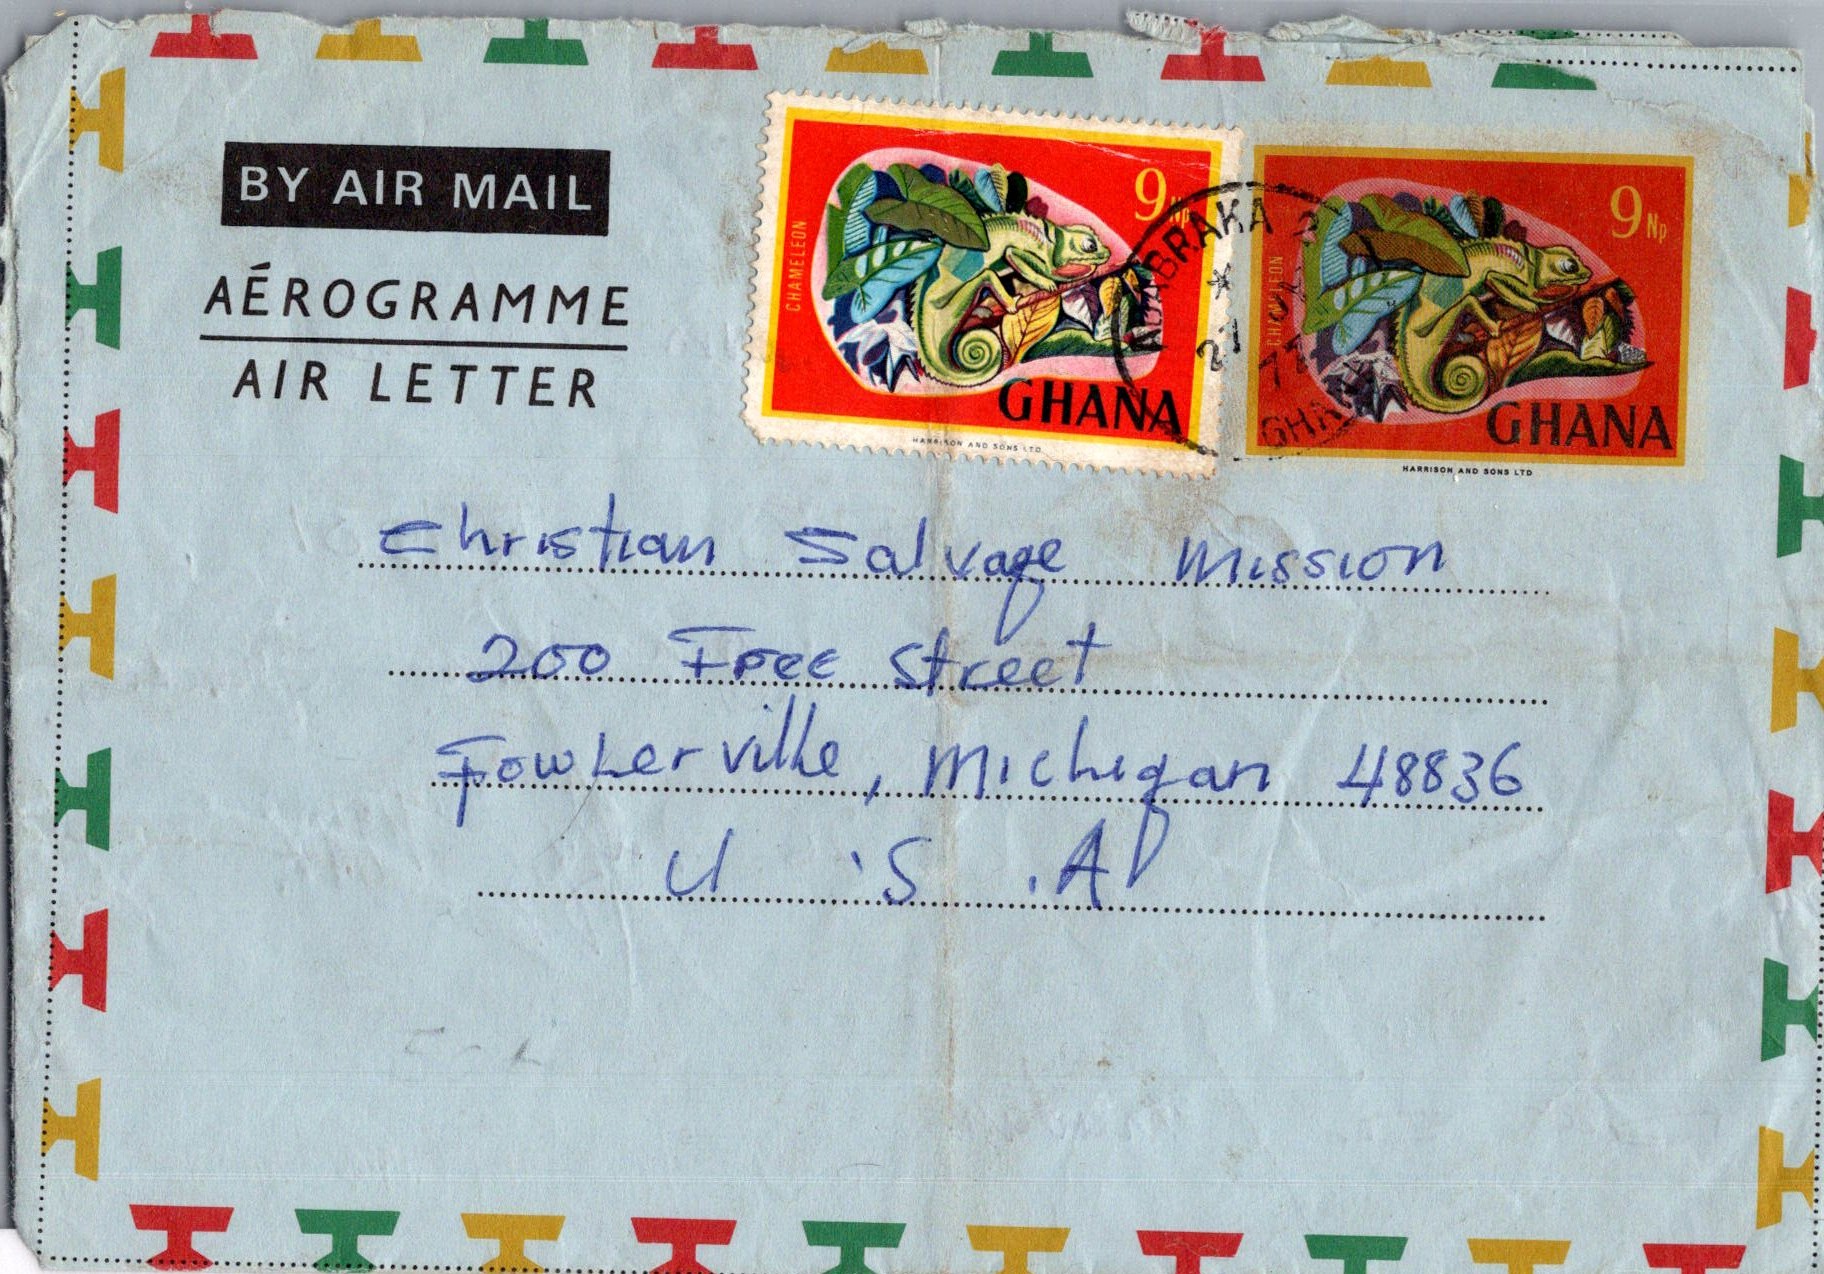 BY AIR MAIL
AÉROGRAMME
AIR LETTER
CHAMELEON
9 Np
GHANA
HARRISON AND SONS LTD
ADABRAKA
GHANA
CHAMELEON
9 Np
GHANA
HARRISON AND SONS LTD
Christian Salvage Mission
200 Free Street
Fowlerville, Michigan 48836
U.S.A